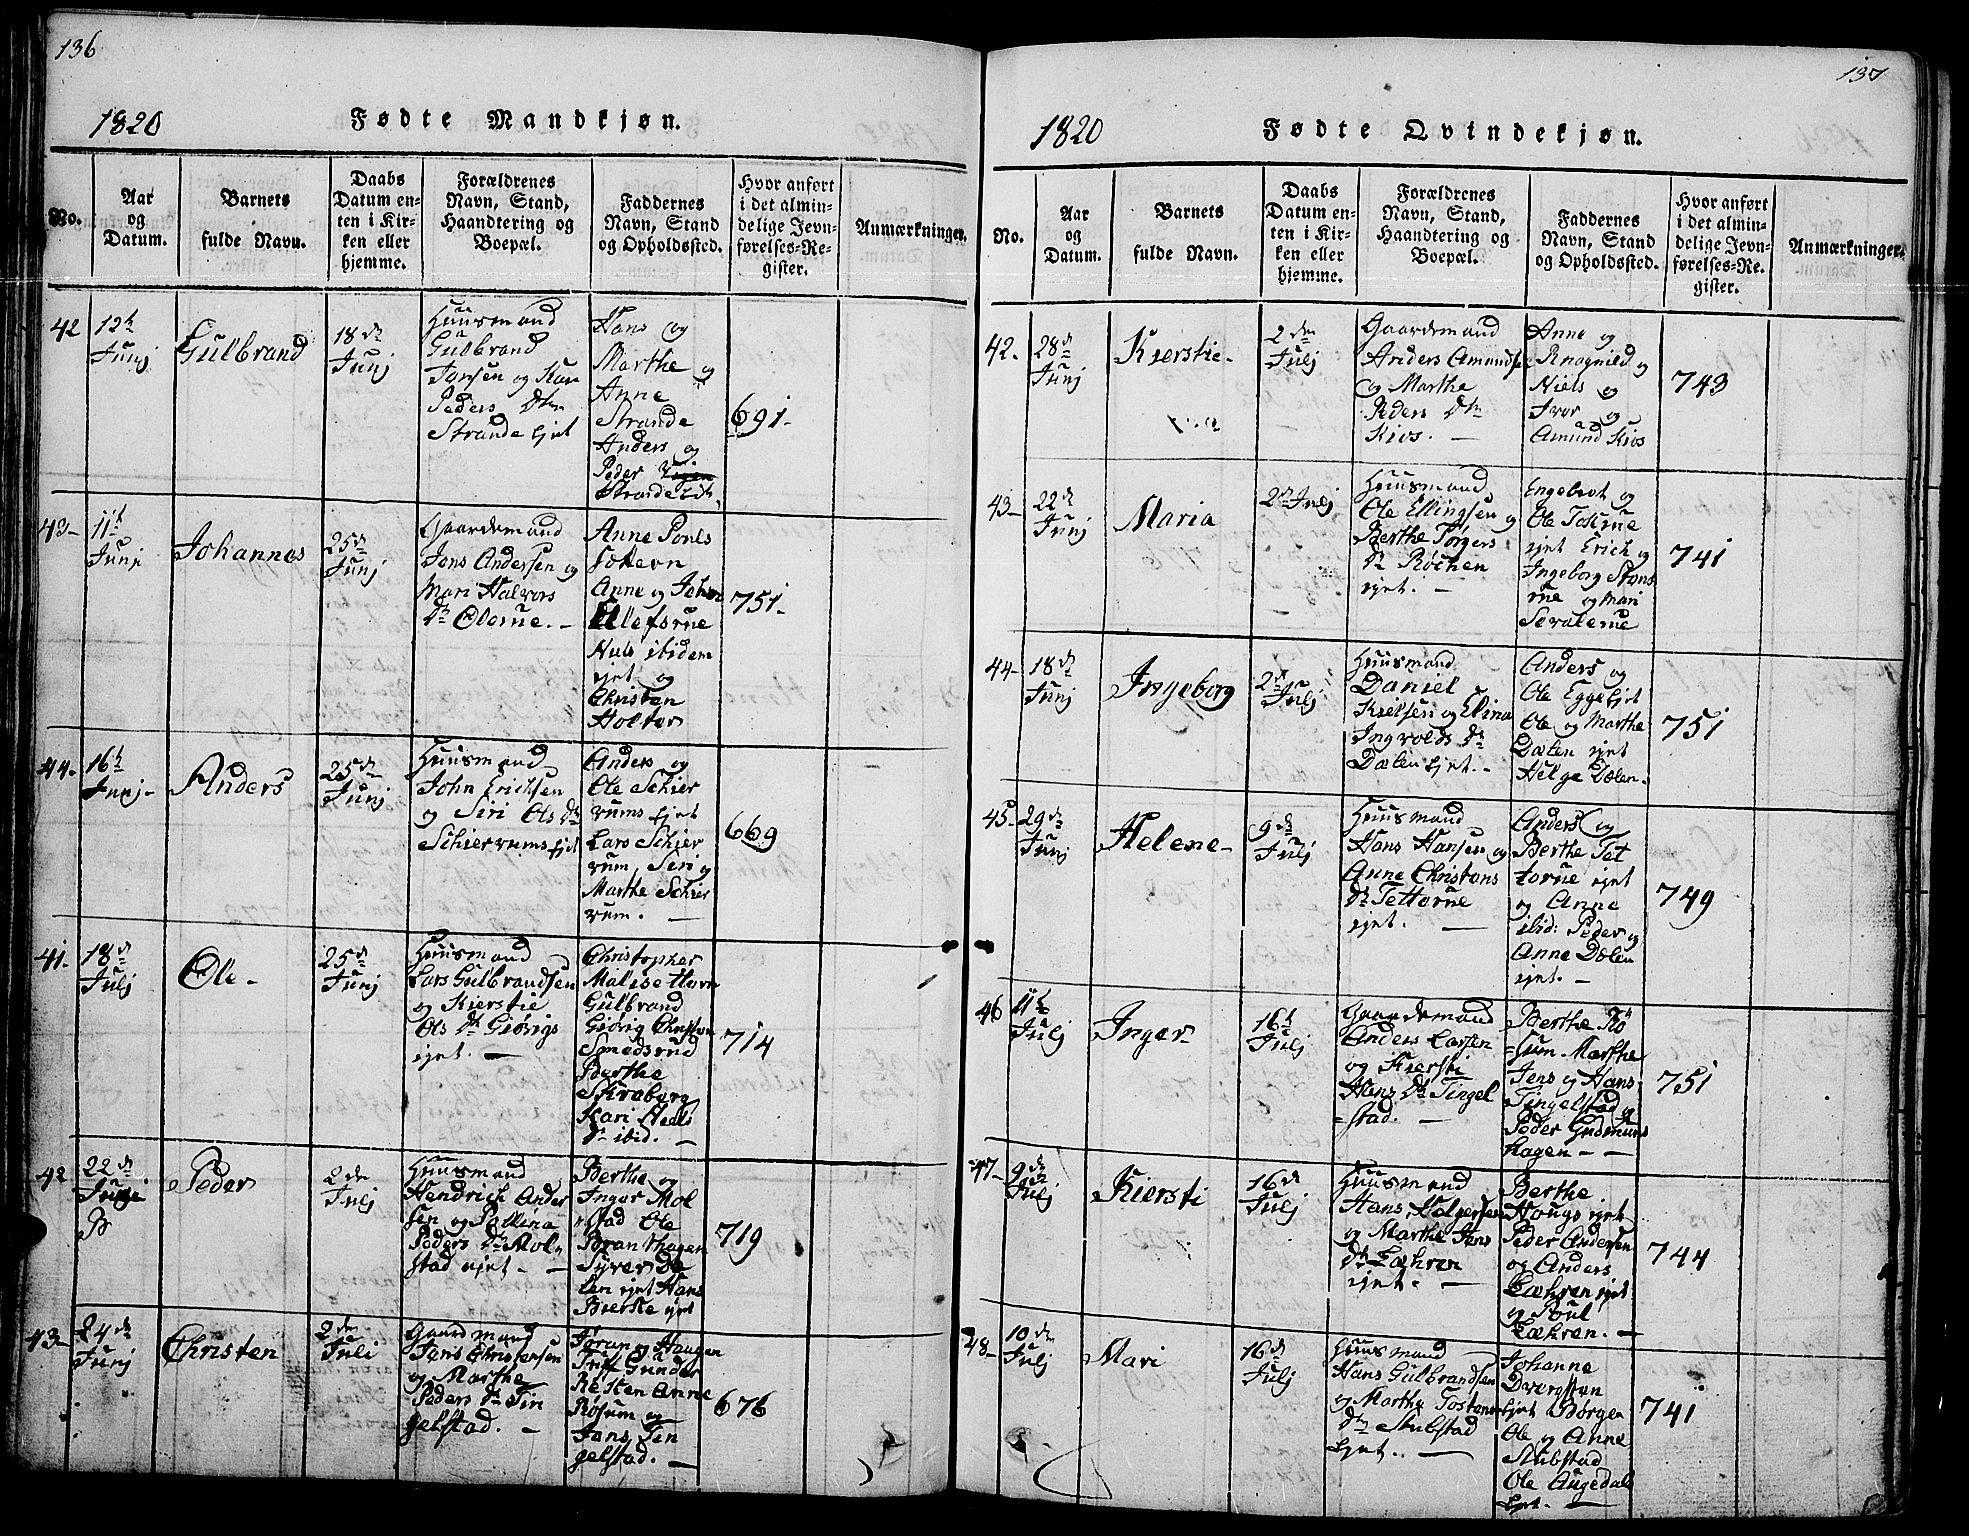 136
1820
Fødte Mandkjøn.
No.
Aar
og
Datum.
Barnets
fulde Navn.
Daabs
Datum en-
ten i Kir-
ken eller
hjemme.
Forældrenes
Navn, Stand,
Haandtering og
Boepæl.
Faddernes
Navn, Stand
og Opholdssted.
Hvor anført
i det almin-
delige Jevn-
førelses-Re-
gister.
Anmærkninger.
42
12t
Junj
Gulbrand
18de
Junj
Huusmand
Gulbrand
Jonsen og Kari
Peders Dtr
Strande Ejet
Hans og
Marthe og
Anne
Strande
Anders og
Peder
Strande
691-
43-
11t
Junj
Johannes
25de
Junj
Gaardemand
Jons Andersen og
Mari Halvors
Dtr Olerne. -
Anne Povls
Anne og
Nils ibidem
ejet og
Christen
Holter
751-
44-
16t
Junj-
Anders
25de
Junj
Huusmand
John Erichsen
og Siri Ols Dtr
Schierrums Ejet
Anders og
Ole Schier
rums Ejet
Lars Schier
rum, Siri og
Marthe Schier
rum. -
669
41-
18de
Julj
Ole-
25de
Junj
Huusmand
Lars Gulbrandsen
og Kierstie
Ols Dtr Giørigs
ejet. -
Christopher
Gulbrand
Giørig
Smedsrud
Berthe
Kari
Dtr ibid. -
714
42
22de
Junj
Peder
2den
Julj
Huusmand
Hendrich Ander
sen og Pallina
Peders Dtr Mol-
stad ejet. -
Berthe og
Inger Mol
stad Ole
Branthagen
len ejet Hans
Bierke ejet
719
43-
24de
Junj
Christen
2den
Juli
Gaardmand
Jens Christensen
og Marthe
Peders Dtr Tin
gelstad. -
Anne
Røsum og
Jens Tin
gelstad. -
676
137
1820
Fødte Qvindekjøn.
No.
Aar
og
Datum.
Barnets
fulde Navn.
Daabs
Datum en-
ten i Kir-
ken eller
hjemme.
Forældrenes
Navn, Stand,
Haandtering og
Boepæl.
Faddernes
Navn, Stand
og Opholdssted.
Hvor anført
i det almin-
delige Jevn-
førelses-Re-
gister.
Anmærkninger.
42-
28de
Junj
Kierstie-
2den
Julj
Gaardemand
Anders Amundse
og Marthe
Peders Dtr
Kios. -
Anne og
Ragnild og
Niels og
Iver og
Amund Kios
743
43-
22de
Junj
Maria
2de Julj
Huusmand
Ole Ellingsen og
Berthe Torgers
Dtr Røchen
ejet. -
Engebret og
Ole
ejet Erich og
Ingeborg
rne og Mari
741
44-
18de
Junj
Ingeborg
2de
Julj
Huusmand
Daniel
Kielsen og Elina
Ingvolds Dtr
Dælen Ejet. -
Anders og
Ole Egge Ejet
Ole og Marthe
Dælen ejet
Helge Dælen-
751
45-
29de
Junj
Helene-
9de
Julj
Huusmand
Hans Hansen og
Anne Christens
Dtr Tettorne
ejet. -
Anders og
Berthe Tet
torne ejet
og Anne
ibid: Peder og
Anne Dælen
ejet. -
749
46
11te
Julj
Inger
16t
Julj
Gaardemand
Anders Larsen
og Kiersti
Hans Dtr Tingel
=stad. -
Berthe Rö
=sum Marthe
Jens og Hans
Tingelstad og
Peder Gudmuns
hagen - -
751
47-
9de
Julj
Kiersti
16de
Julj
Huusmand
Hans Holgersen
og Marthe Jens
Dtr Læhren
ejet. -
Berthe
Hougs ejet
Peder Andersen
og Anders
Læhren ejet
og Poul
Læhren. -
744
48-
10de
Julj
Mari
16de
Julj
Huusmand
Hans Gulbrandsen
og Marthe Tostens
Dtr Stubstad
Ejet. -
Johanne
Dvergsten
Ejet Børger
Ole og Anne
Stubstad
Ole Augedals
Ejet. -
741